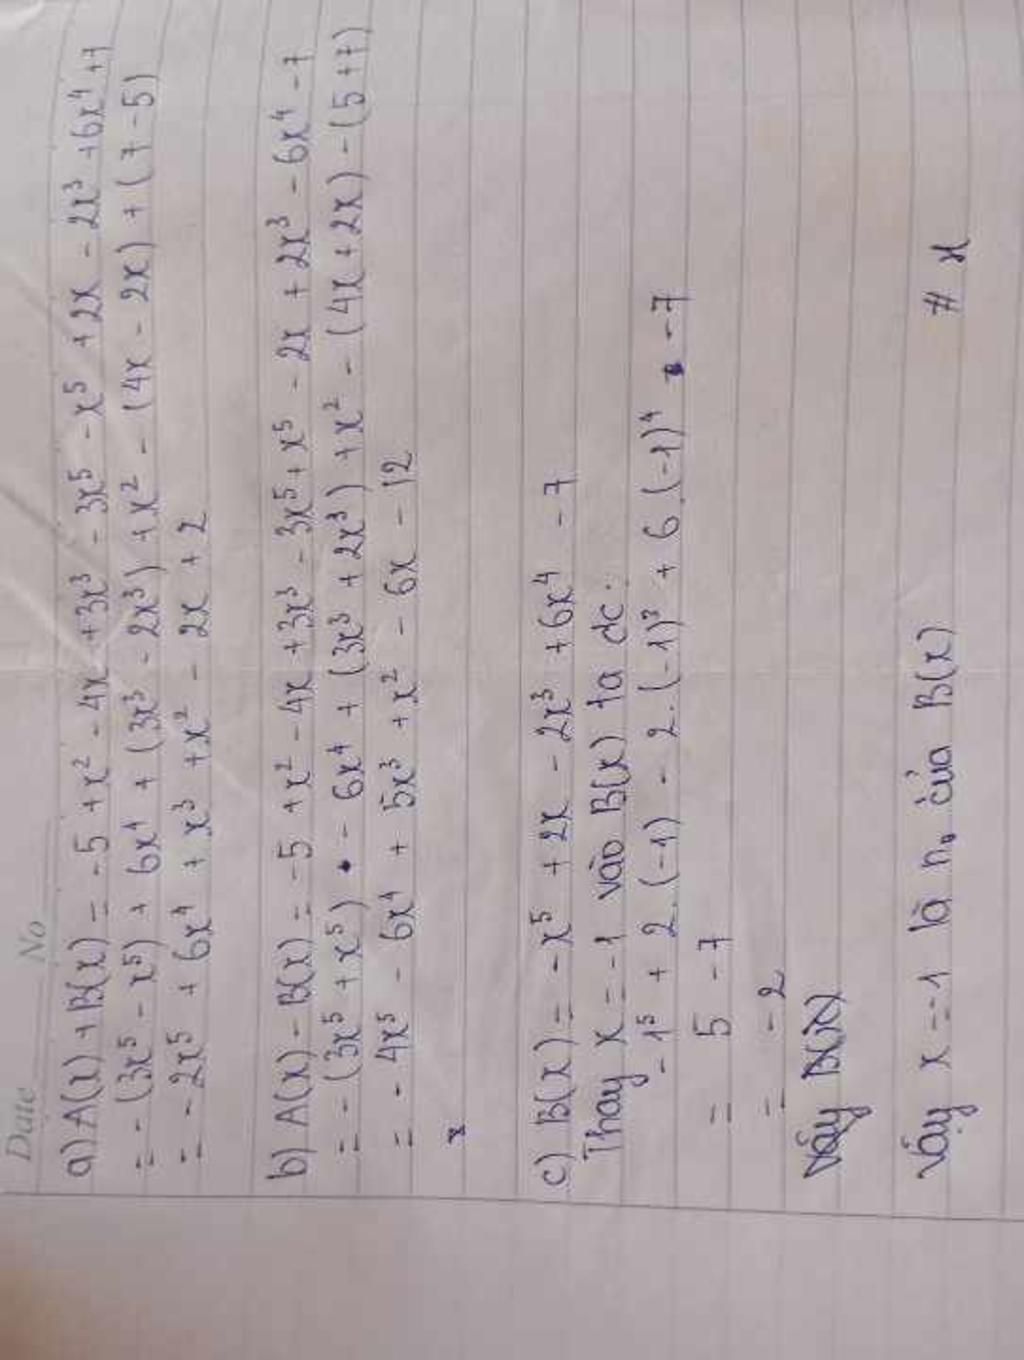 Date No
a) A(x) + B(x) = -5 + x² - 4x + 3x³ - 3x⁵ - x⁵ + 2x - 2x³ + 6x⁴ + 7
= - (3x⁵ - x⁵) + 6x⁴ + (3x³ - 2x³) + x² - (4x - 2x) + (7 - 5)
= - 2x⁵ + 6x⁴ + x³ + x² - 2x + 2
b) A(x) - B(x) = -5 + x² - 4x + 3x³ - 3x⁵ + x⁵ - 2x + 2x³ - 6x⁴ - 7
= - (3x⁵ + x⁵) - 6x⁴ + (3x³ + 2x³) + x² - (4x + 2x) - (5 + 7)
= - 4x⁵ - 6x⁴ + 5x³ + x² - 6x - 12
x
c) B(x) = - x⁵ + 2x - 2x³ + 6x⁴ - 7
Thay x = -1 vào B(x) ta dc:
- 1⁵ + 2.(-1) - 2.(-1)³ + 6(-1)⁴ - 7
= 5 - 7
= - 2
Vậy B(x)
Vậy x = -1 là n₀ của B(x)
#